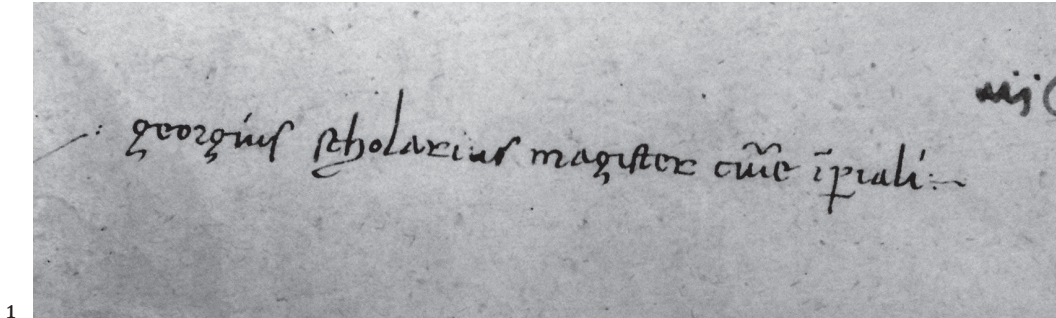 iiij
georgius scholarius magister cũie ĩpiali :~
1